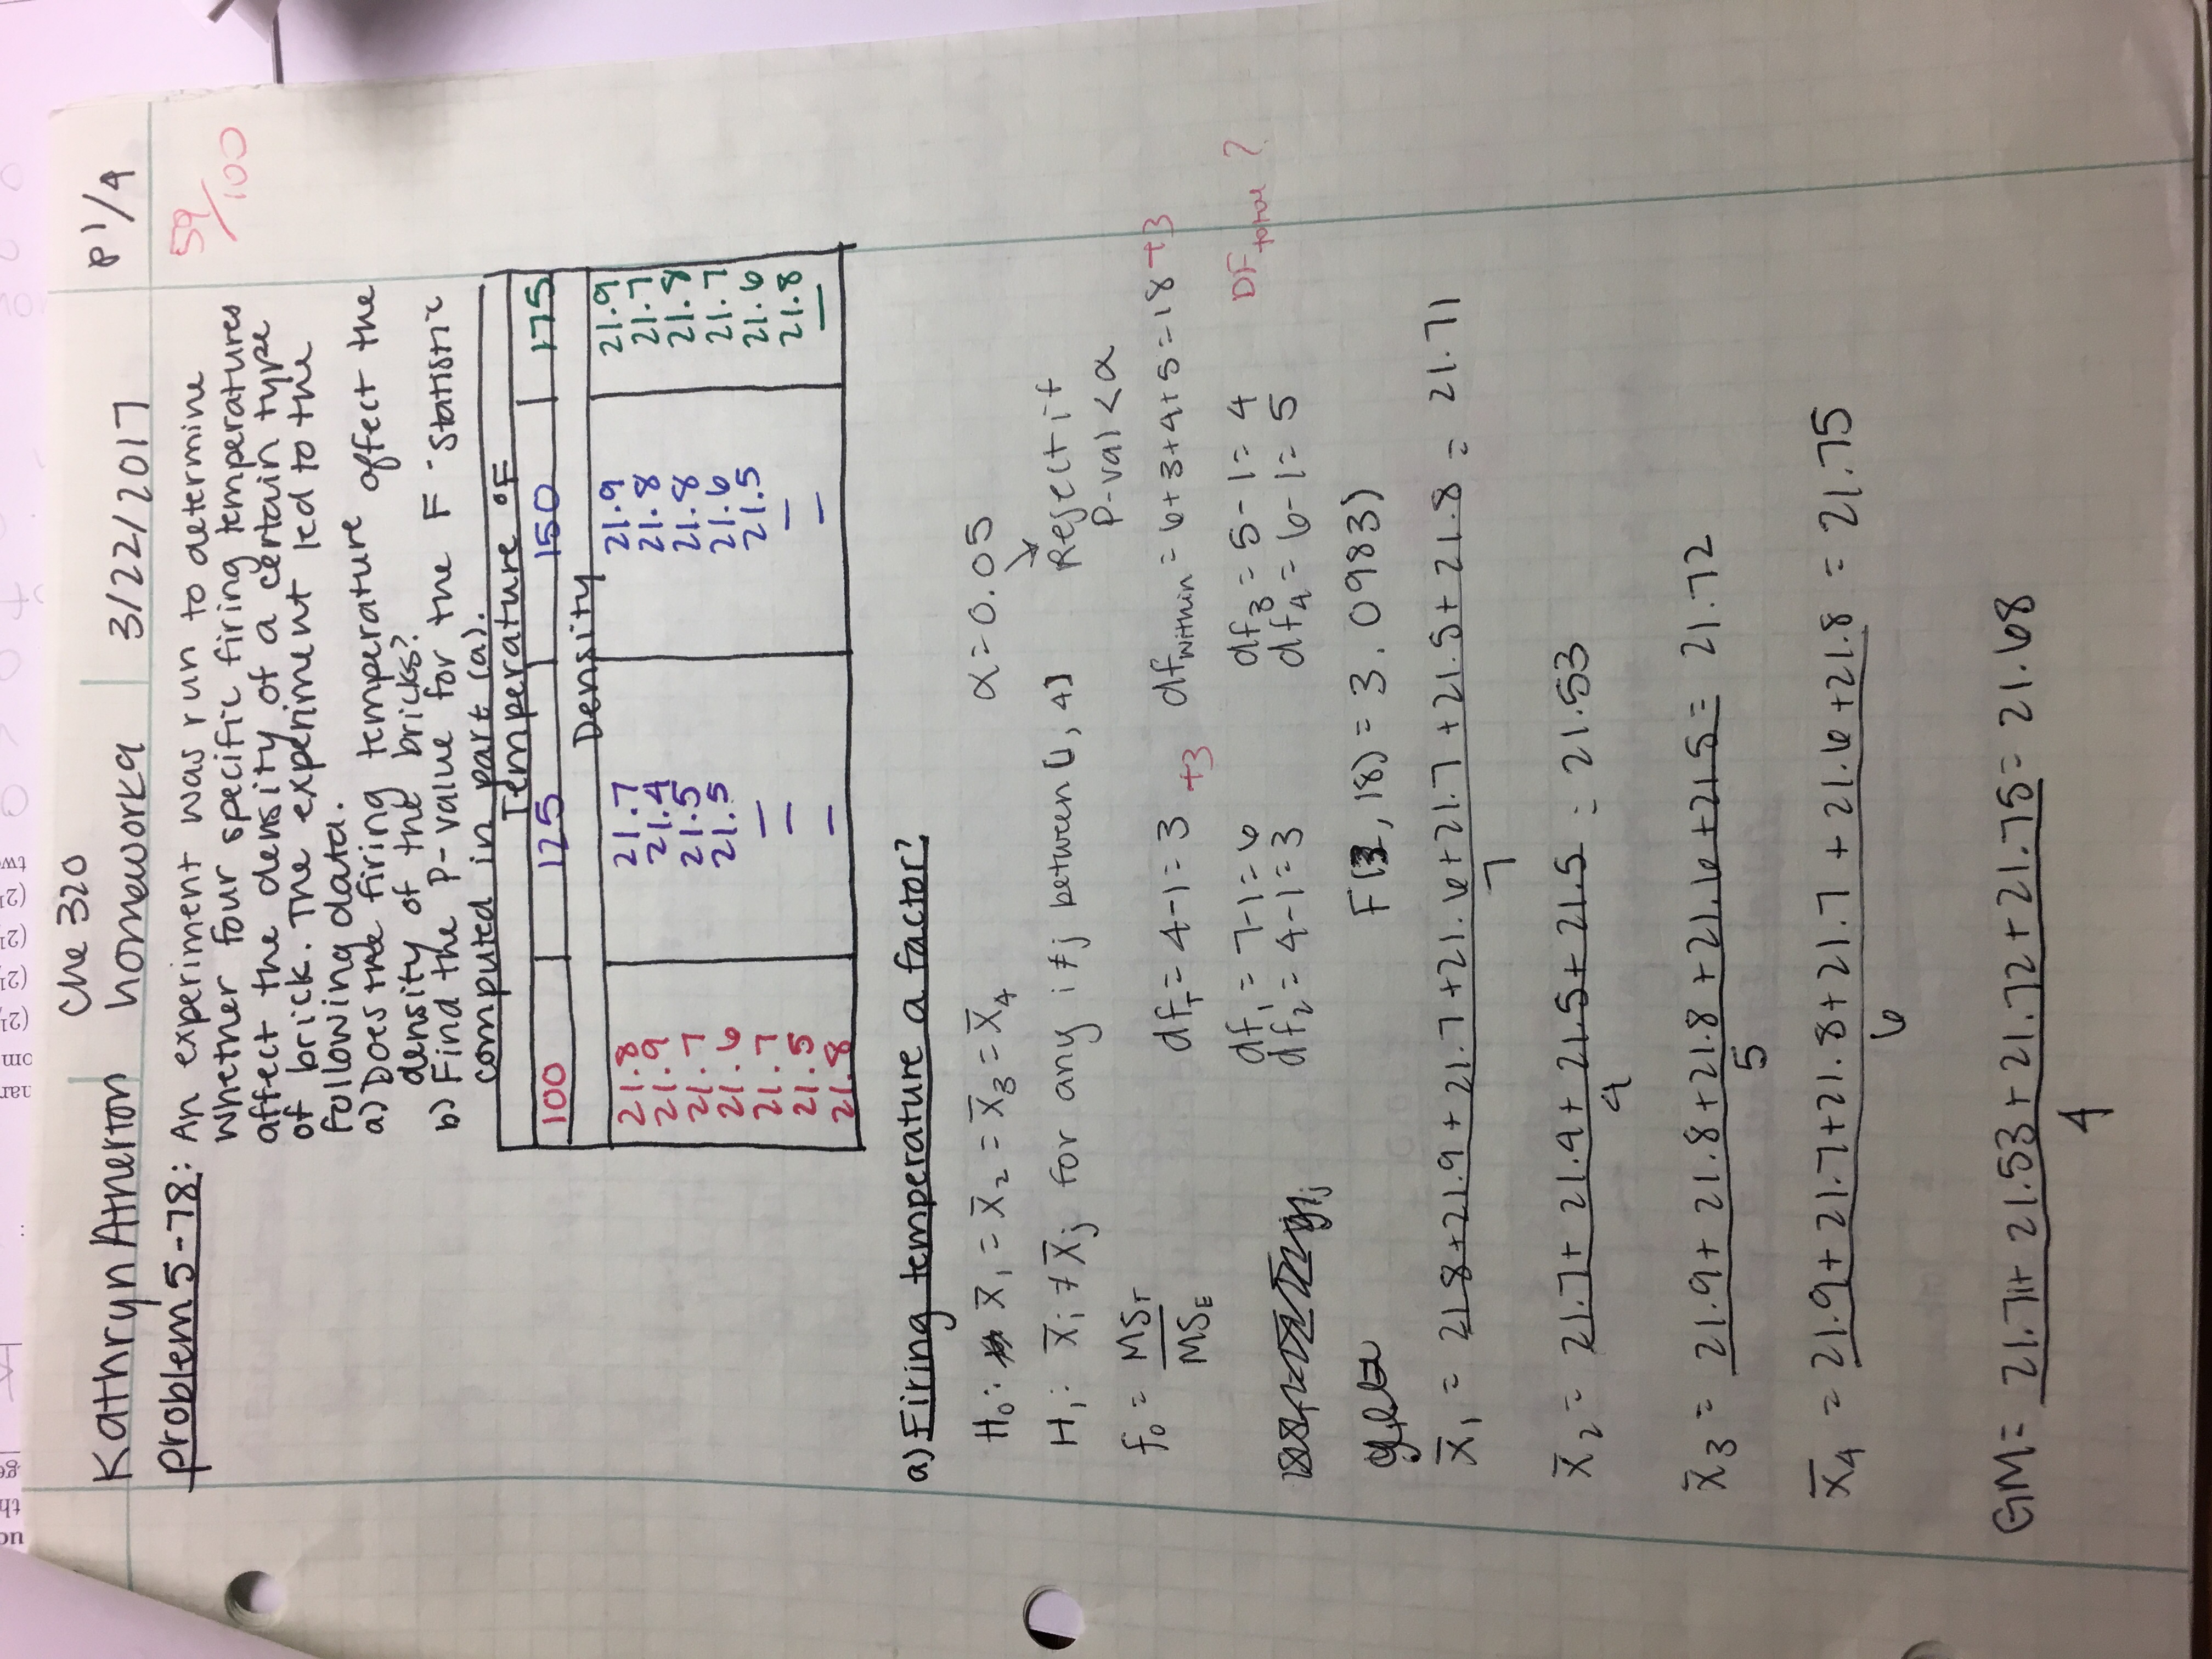 Che 320
Kathryn Atherton homework 9 3/22/2017 P 1/4
problem 5-78: An experiment was run to determine
59/100
whether four specific firing temperatures
affect the density of a certain type
of brick. The experiment led to the
following data.
a) Does the firing temperature affect the
density of the bricks?
b) Find the P-value for the F-Statistic
computed in part (a).
Temperature °F
100 125 150 175
Density
21.8 21.7 21.9 21.9
21.9 21.4 21.8 21.7
21.7 21.5 21.8 21.8
21.6 21.5 21.6 21.7
21.7 — 21.5 21.6
21.5 — — 21.8
21.8 — — —
a) Firing temperature a factor?
H₀: x̄₁ = x̄₂ = x̄₃ = x̄₄ α = 0.05
H₁: x̄ᵢ ≠ x̄ⱼ for any i≠j between [1, 4] Reject if
P-val < α
f₀ = MS_T / MS_E
df_T = 4-1 = 3 +3 df_within = 6+3+4+5 = 18 +3
df₁ = 7-1 = 6 df₃ = 5-1 = 4 DF total ?
df₂ = 4-1 = 3 df₄ = 6-1 = 5
F(3, 18) = 3.0983)
x̄₁ = 21.8+21.9+21.7+21.6+21.7+21.5+21.8 = 21.71
7
x̄₂ = 21.7+21.4+21.5+21.5 = 21.53
4
x̄₃ = 21.9+21.8+21.8+21.6+21.5 = 21.72
5
x̄₄ = 21.9+21.7+21.8+21.7+21.6+21.8 = 21.75
6
GM = 21.71+21.53+21.72+21.75 = 21.68
4